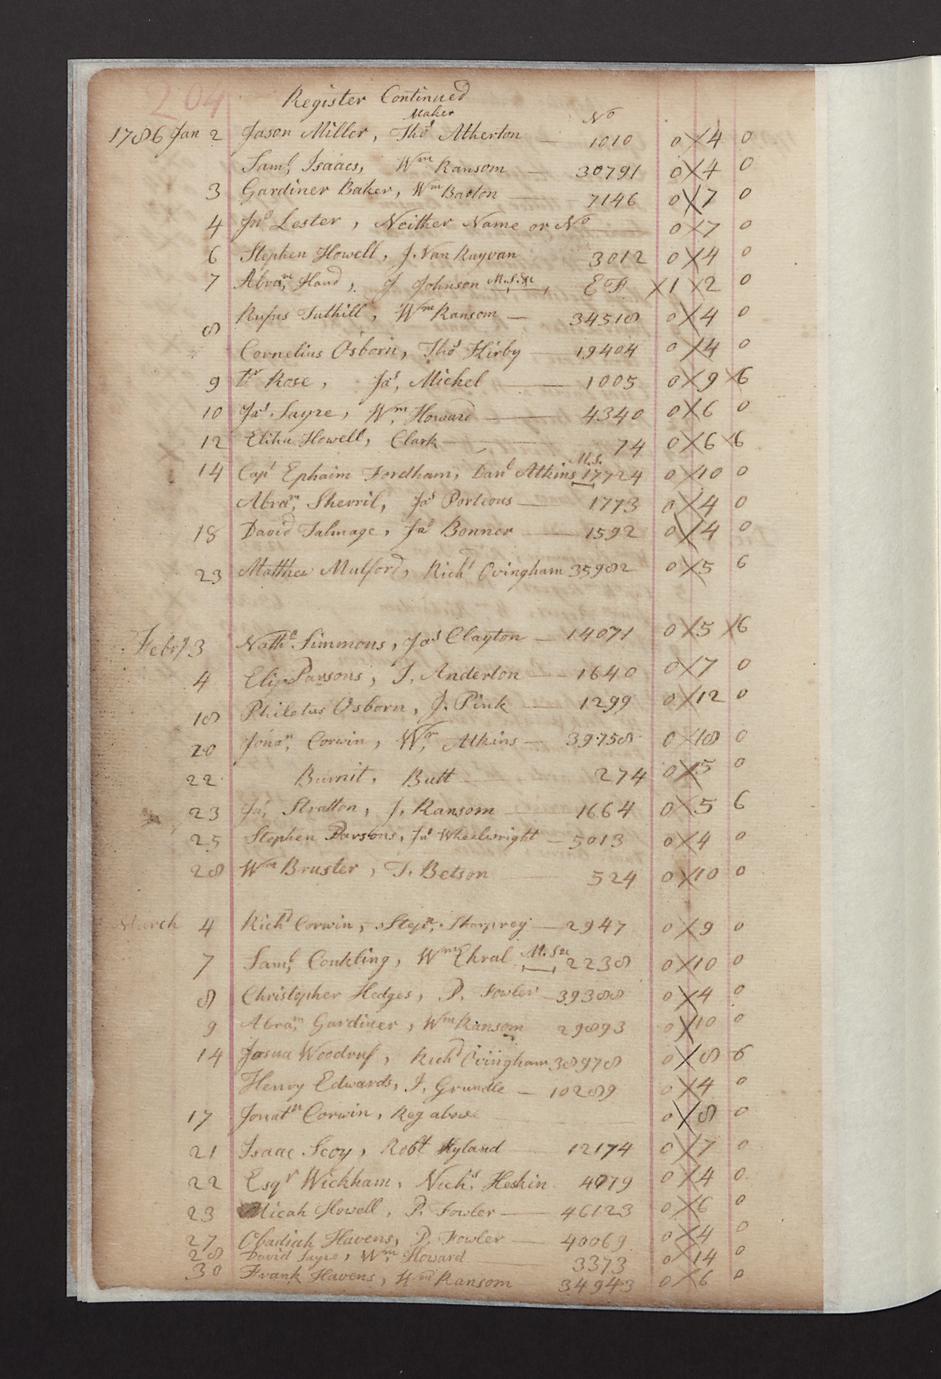 204
Register Continued
Maker No
1786 Jan 2 Jason Miller, Thos Atherton — 1010 0 4 0
Saml Isaacs, Wm Ransom — 30791 0 4 0
3 Gardiner Baker, Wm Barton 7146 0 7 0
4 Jno Lester, Neither Name or No — 0 7 0
6 Stephen Howell, J. Van Rayvan 3012 0 4 0
7 Abram Hand, J Johnson 1 2 0
8 Rufus Tuthill, Wm Ransom — 34518 0 4 0
Cornelius Osborn, Thos Kirby — 19404 0 4 0
9 Dr Rose, Jas Michel — 1005 0 9 6
10 Jas Sayre, Wm Howard — 4340 0 6 0
12 Elihu Howell, Clark — 74 0 6 6
14 Capt Ephaim Fordham, Danl Atkins M.S. 17724 0 10 0
Abram Sherril, Jas Portious — 1773 0 4 0
18 David Talmage, Jas Bonner — 1592 0 4 0
23 Matthew Mulford, Richd Ovingham 35982 0 5 6
Febry 3 Nathl Simmons, Jas Clayton — 14071 0 5 6
4 Eli Parsons, J. Anderton — 1640 0 7 0
18 Philetus Osborn, J. Pink — 1299 0 12 0
20 Jonan Corwin, Wm Atkins — 39758 0 18 0
22 Burnit, Butt — 274 0 5
23 Jas Stratton, J. Ransom — 1664 0 5 6
25 Stephen Parsons, Jno Wheelwright — 5013 0 4 0
28 Wm Bruster, T. Betson — 524 0 10 0
March 4 Richd Corwin, — 2947 0 9 0
7 Saml Conkling, Wm 2238 0 10 0
8 Christopher Hedges, P. Fowler — 39388 0 4 0
9 Abram Gardiner, Wm Ransom 29893 0 10 0
14 Josua Woodruf, Richd Ovingham 38978 0 8 6
Henry Edwards, J. Grundle — 10289 0 4 0
17 Jonatn Corwin, Reg above 0 8 0
21 Isaac Scoy, Robt Hyland 12174 0 7 0
22 Esqr Wickham, Nichs Heskin 4079 0 4 0
23 Micah Howell, P. Fowler — 46123 0 6 0
27 Obadiah Havens, P. Fowler — 40069 0 4 0
28 David Sayre, Wm Howard 3373 0 14 0
30 Frank Havens, Wm Ransom 34943 0 6 0